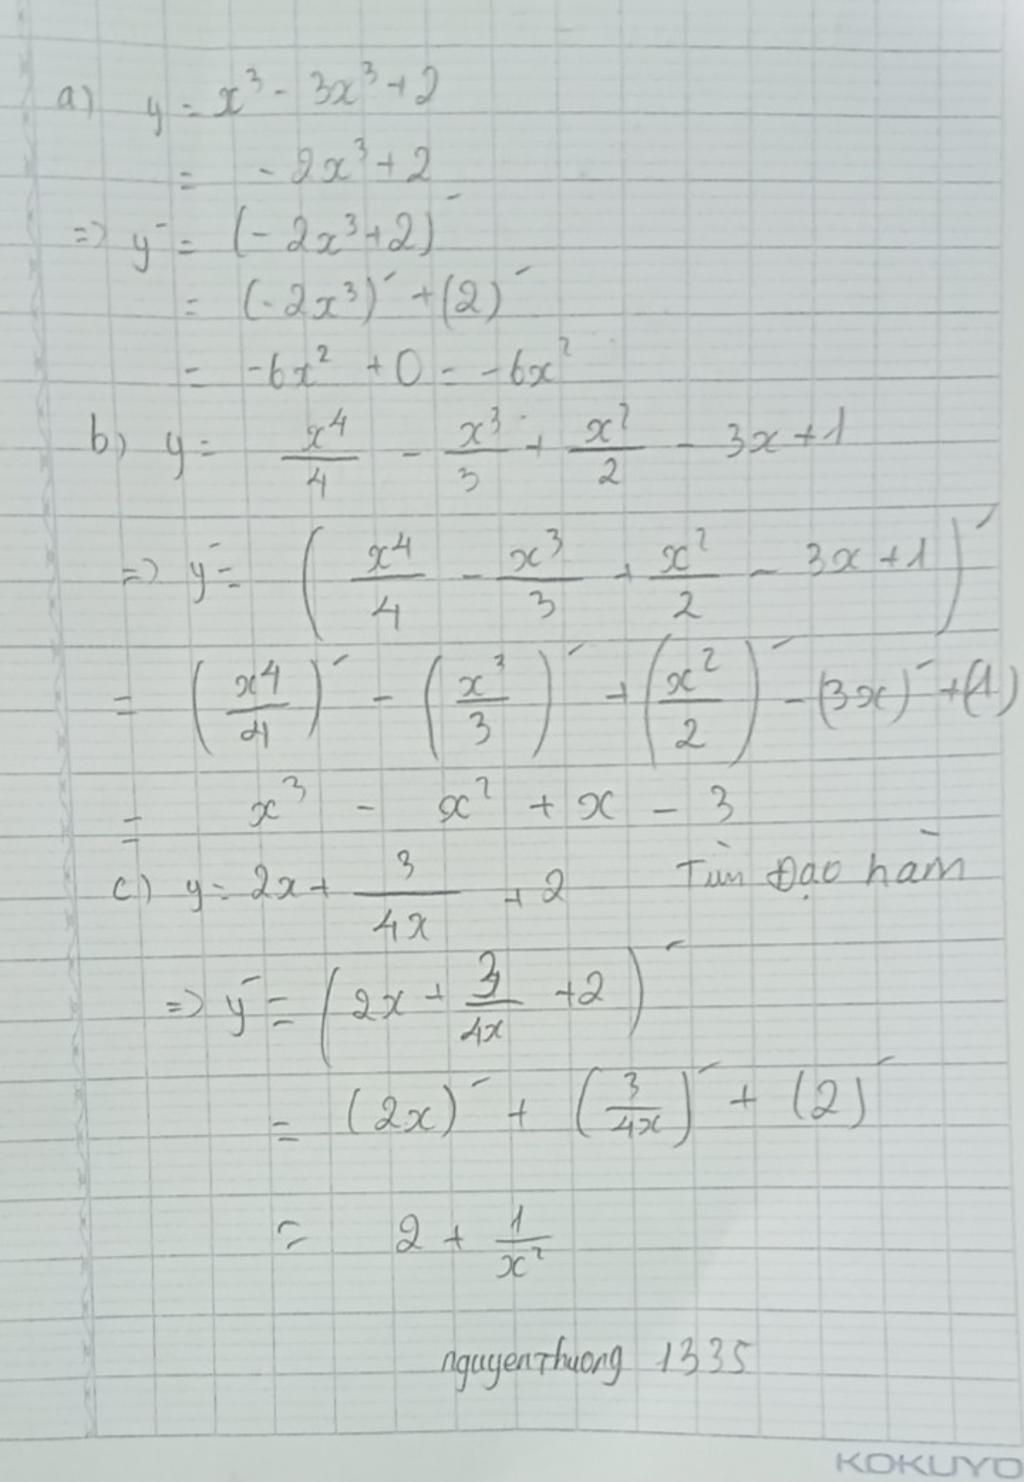 a) y = x³ - 3x³ + 2
= - 2x³ + 2
=> y' = (- 2x³ + 2)'
= (- 2x³)' + (2)'
= -6x² + 0 = -6x²
b) y = x⁴/4 - x³/3 + x²/2 - 3x + 1
=> y' = (x⁴/4 - x³/3 + x²/2 - 3x + 1)'
= (x⁴/4)' - (x³/3)' + (x²/2)' - (3x)' + (1)
= x³ - x² + x - 3
c) y = 2x + 3/4x + 2 Tìm Đạo hàm
=> y' = (2x + 3/4x + 2)'
= (2x)' + (3/4x)' + (2)'
= 2 + 1/x²
nguyenthuong 1335
KOKUYO